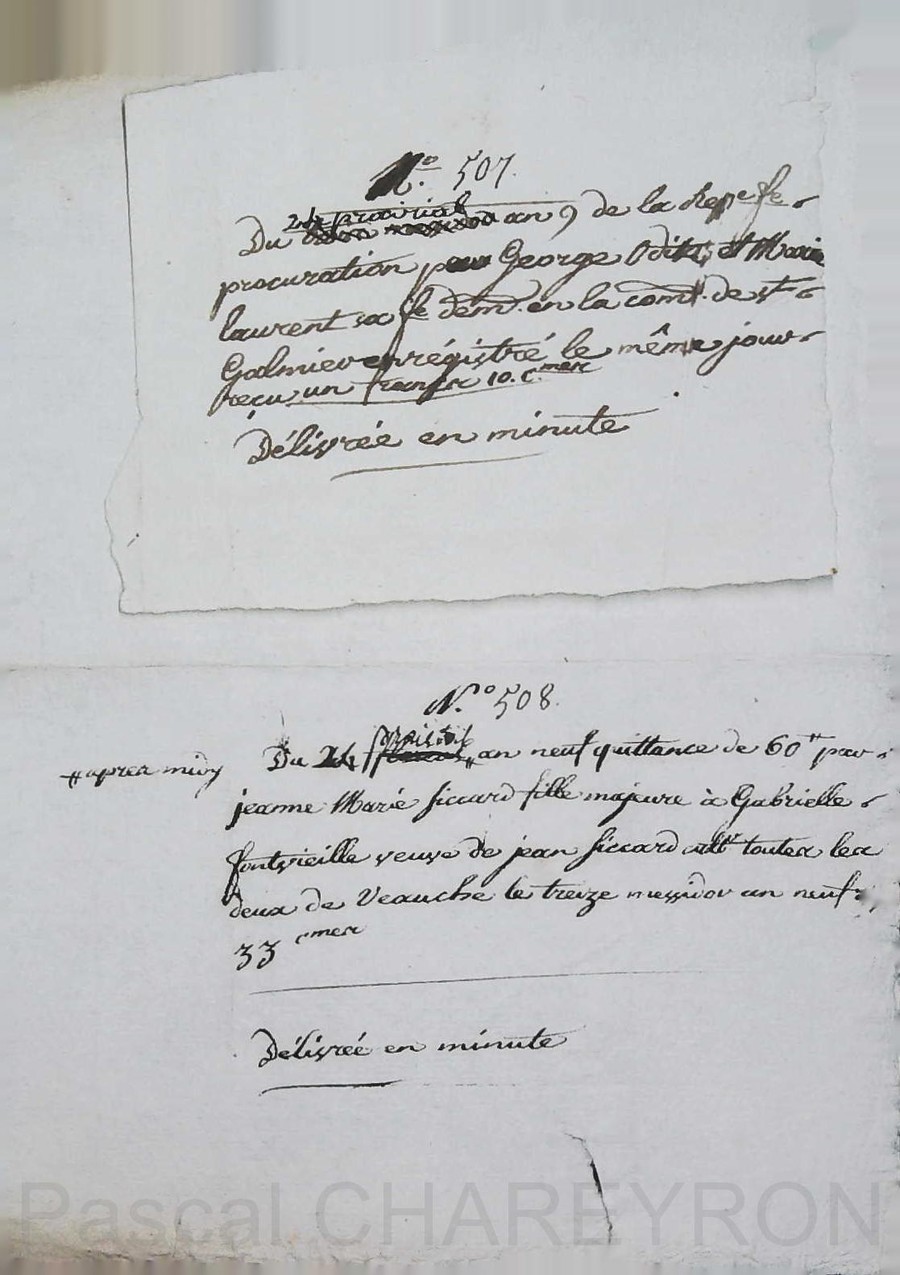 N.° 507.
24 prairial
Du an 9 de la Repe fe
procuration par George Odin et Marie
laurent sa fe dem. en la com. de st
Galmier enrégistré le même jour
reçu un franc 10. cmes
Délivrée en minute
N.° 508.
prairial
Du 24 an neuf quittance de 60 tt par
# apres midy
jeanne Marie siccard fille majeure à Gabrielle
fontvieille veuve de jean siccard toutes les
deux de Veauche le treize messidor an neuf
33 cmes
Délivrée en minute
Pascal CHAREYRON